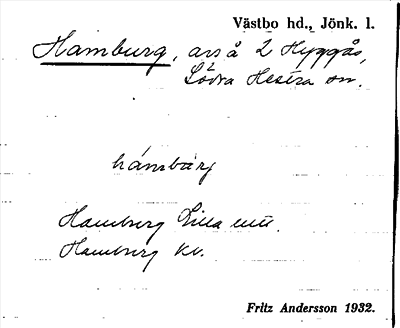 Västbo hd., Jönk. l.
Hamburg, avs å 2 Hyggås,
Södra Hestra sn.
hámbàrj
Hamburg Lilla
Hamburg kv.
Fritz Andersson 1932.